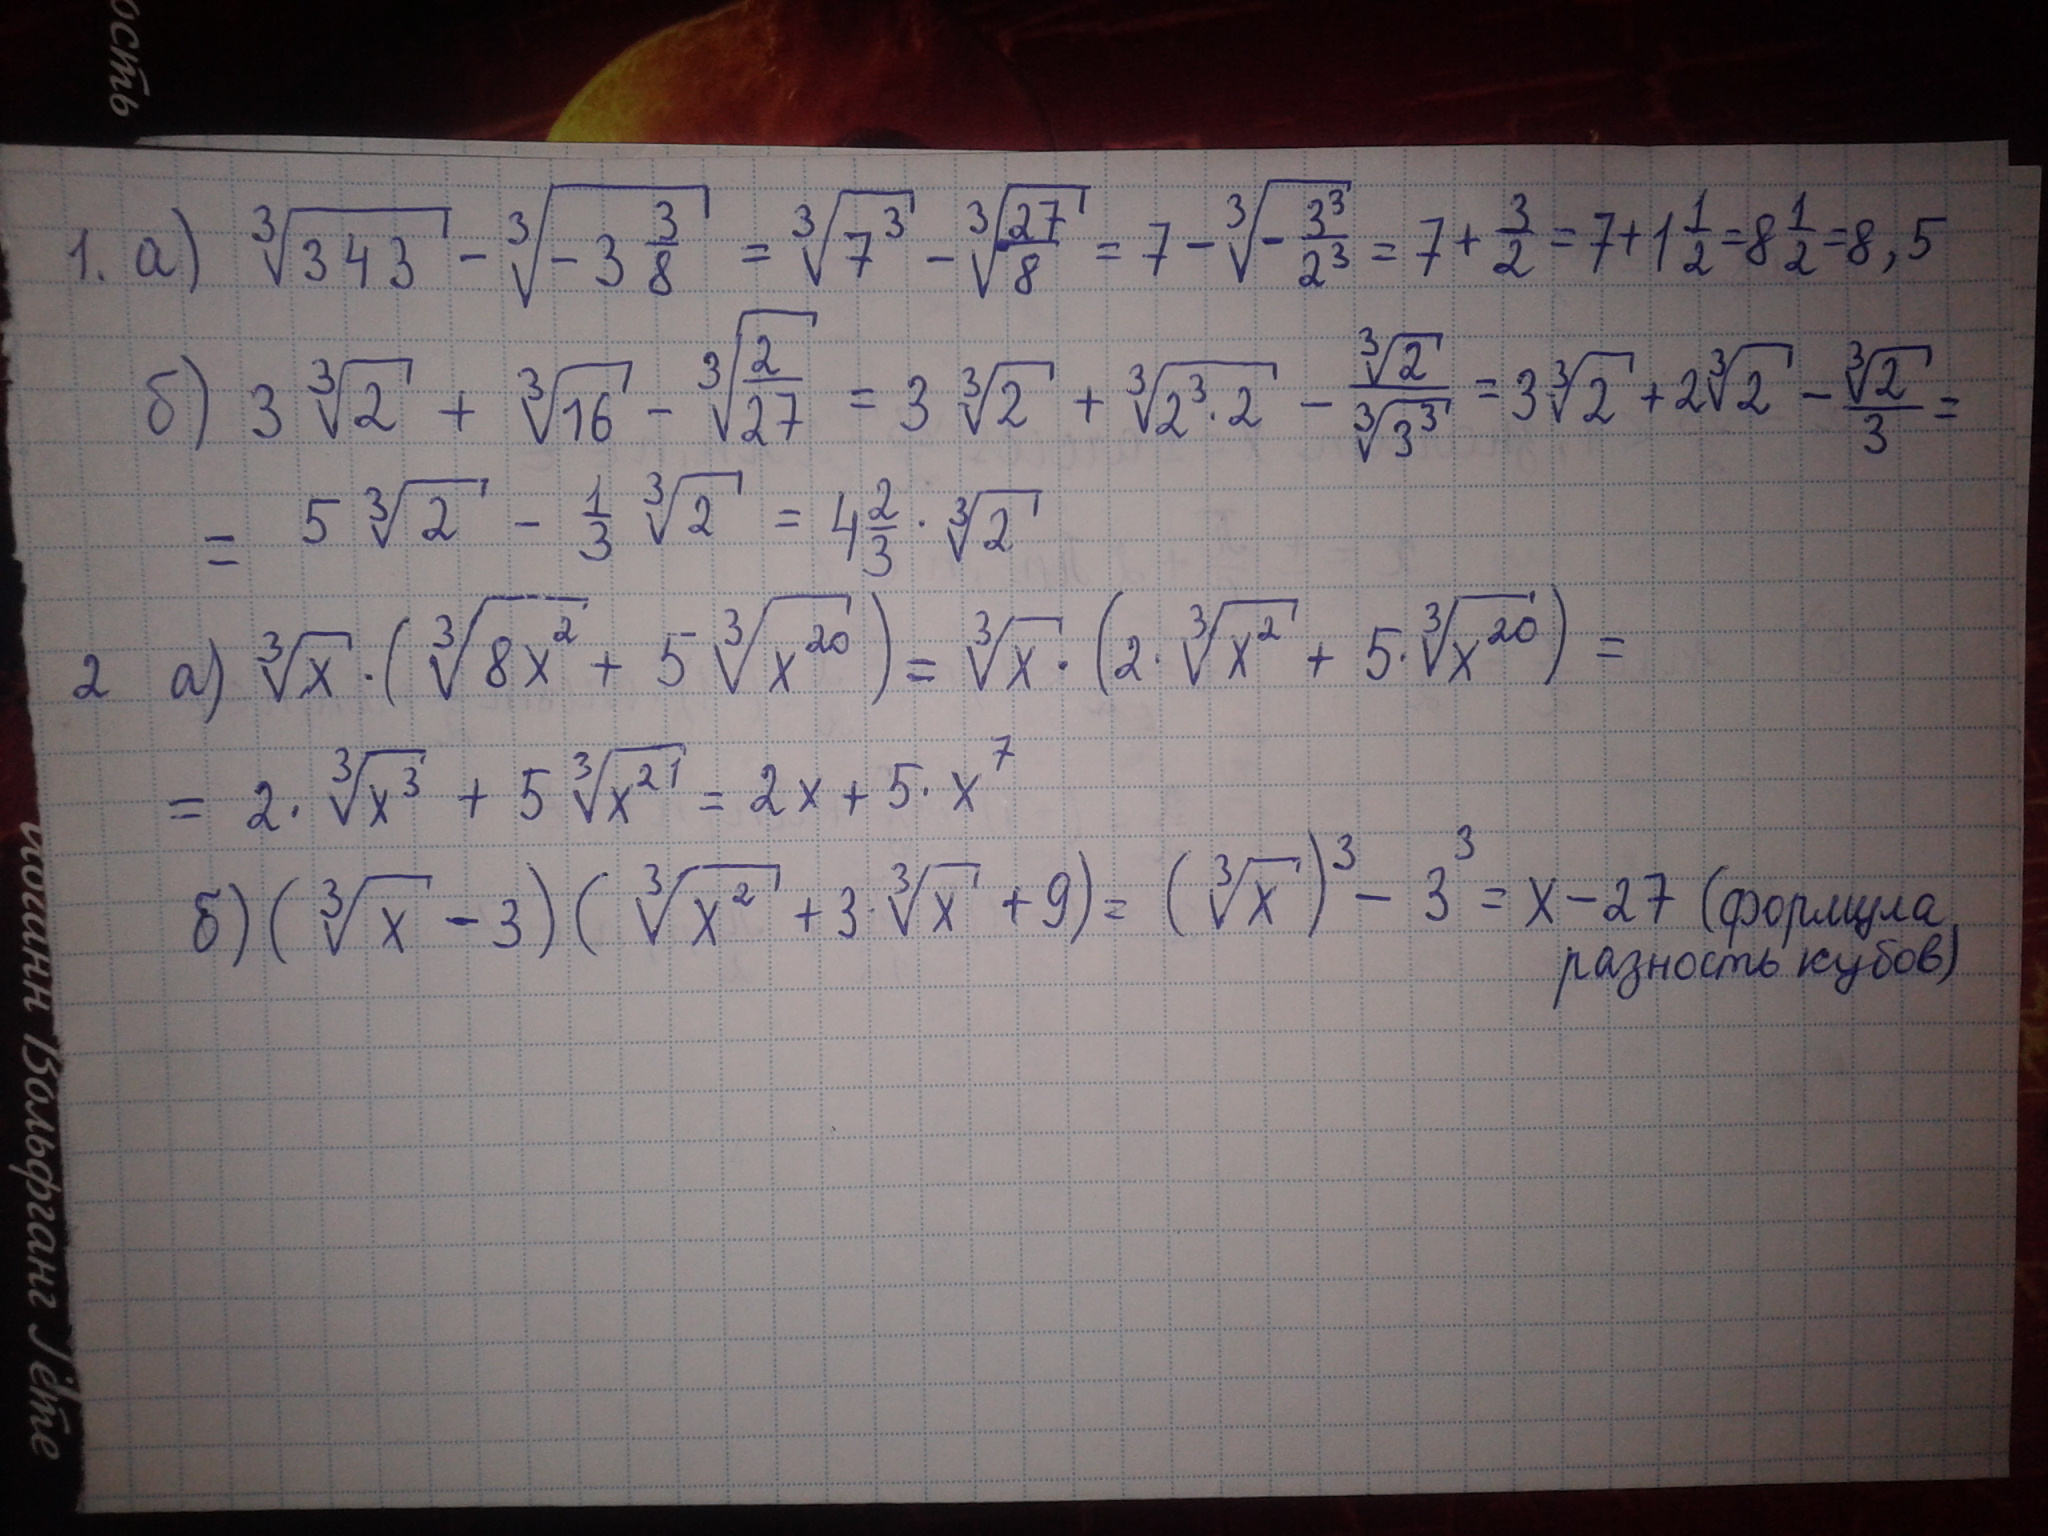 ость
1. а) ∛343 - ∛(-3 3/8) = ∛(7³) - ∛(-27/8) = 7 - ∛(-3³/2³) = 7 + 3/2 = 7 + 1 1/2 = 8 1/2 = 8,5
б) 3 ∛2 + ∛16 - ∛(2/27) = 3 ∛2 + ∛(2³·2) - ∛2/∛(3³) = 3∛2 + 2∛2 - ∛2/3 =
= 5 ∛2 - 1/3 ∛2 = 4 2/3 · ∛2
2 а) ∛x · (∛(8x²) + 5 ∛(x²⁰)) = ∛x · (2 · ∛(x²) + 5 · ∛(x²⁰)) =
= 2 · ∛(x³) + 5 ∛(x²¹) = 2x + 5 · x⁷
б) (∛x - 3)(∛(x²) + 3 · ∛x + 9) = (∛x)³ - 3³ = x - 27 (формула
разность кубов)
Иоганн Вольфганг Гёте